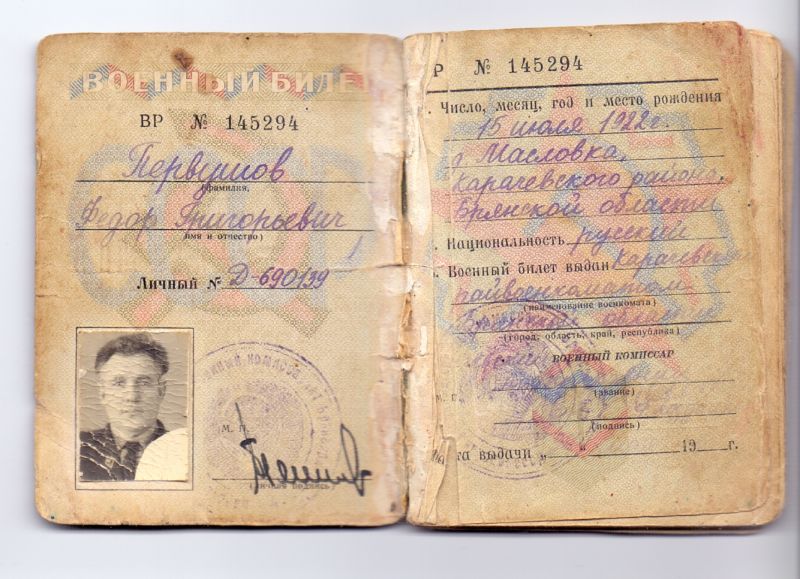 ВОЕННЫЙ БИЛЕ
ВР № 145294
Первушов
(фамилия,
Федор Григорьевич
имя и отчество)
Личный № Д-690139
М. П.
(личная подпись)
Р № 145294
. Число, месяц, год и место рождения
15 июля 1922 г.
д. Масловка,
Карачевского района,
Брянской области
. Национальность русский
. Военный билет выдан Карачевс
райвоенкоматом
(наименование военкомата)
Брянской области
(город, область, край, республика)
ВОЕННЫЙ КОМИССАР
м. п.
(звание)
(подпись)
та выдачи „ “ 19 г.